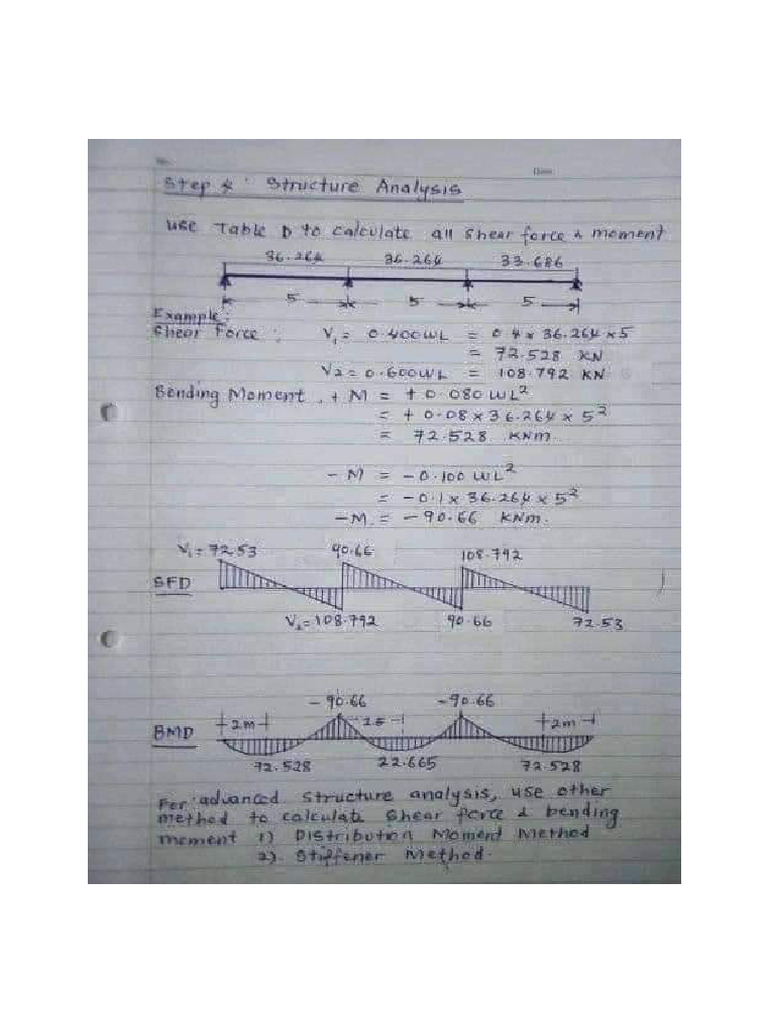 Step 4 : Structure Analysis
Use Table D to calculate all shear force & moment
36.264 36.264 33.686
5 5 5
Example:
Shear Force : V1 = 0.400WL = 0.4 x 36.264 x 5
= 72.528 KN
V2 = 0.600WL = 108.792 KN
Bending Moment, + M = + 0.080 WL²
= + 0.08 x 36.264 x 5²
= 72.528 KNm.
- M = -0.100 WL²
= -0.1 x 36.264 x 5²
-M = -90.66 KNm.
V1 = 72.53 90.66 108.792
SFD
V2 = 108.792 90.66 72.53
- 90.66 -90.66
BMD 2m 2.5 2m
72.528 22.665 72.528
For advanced structure analysis, use other
method to calculate shear force & bending
moment 1) Distribution Moment Method
2). Stiffener Method.